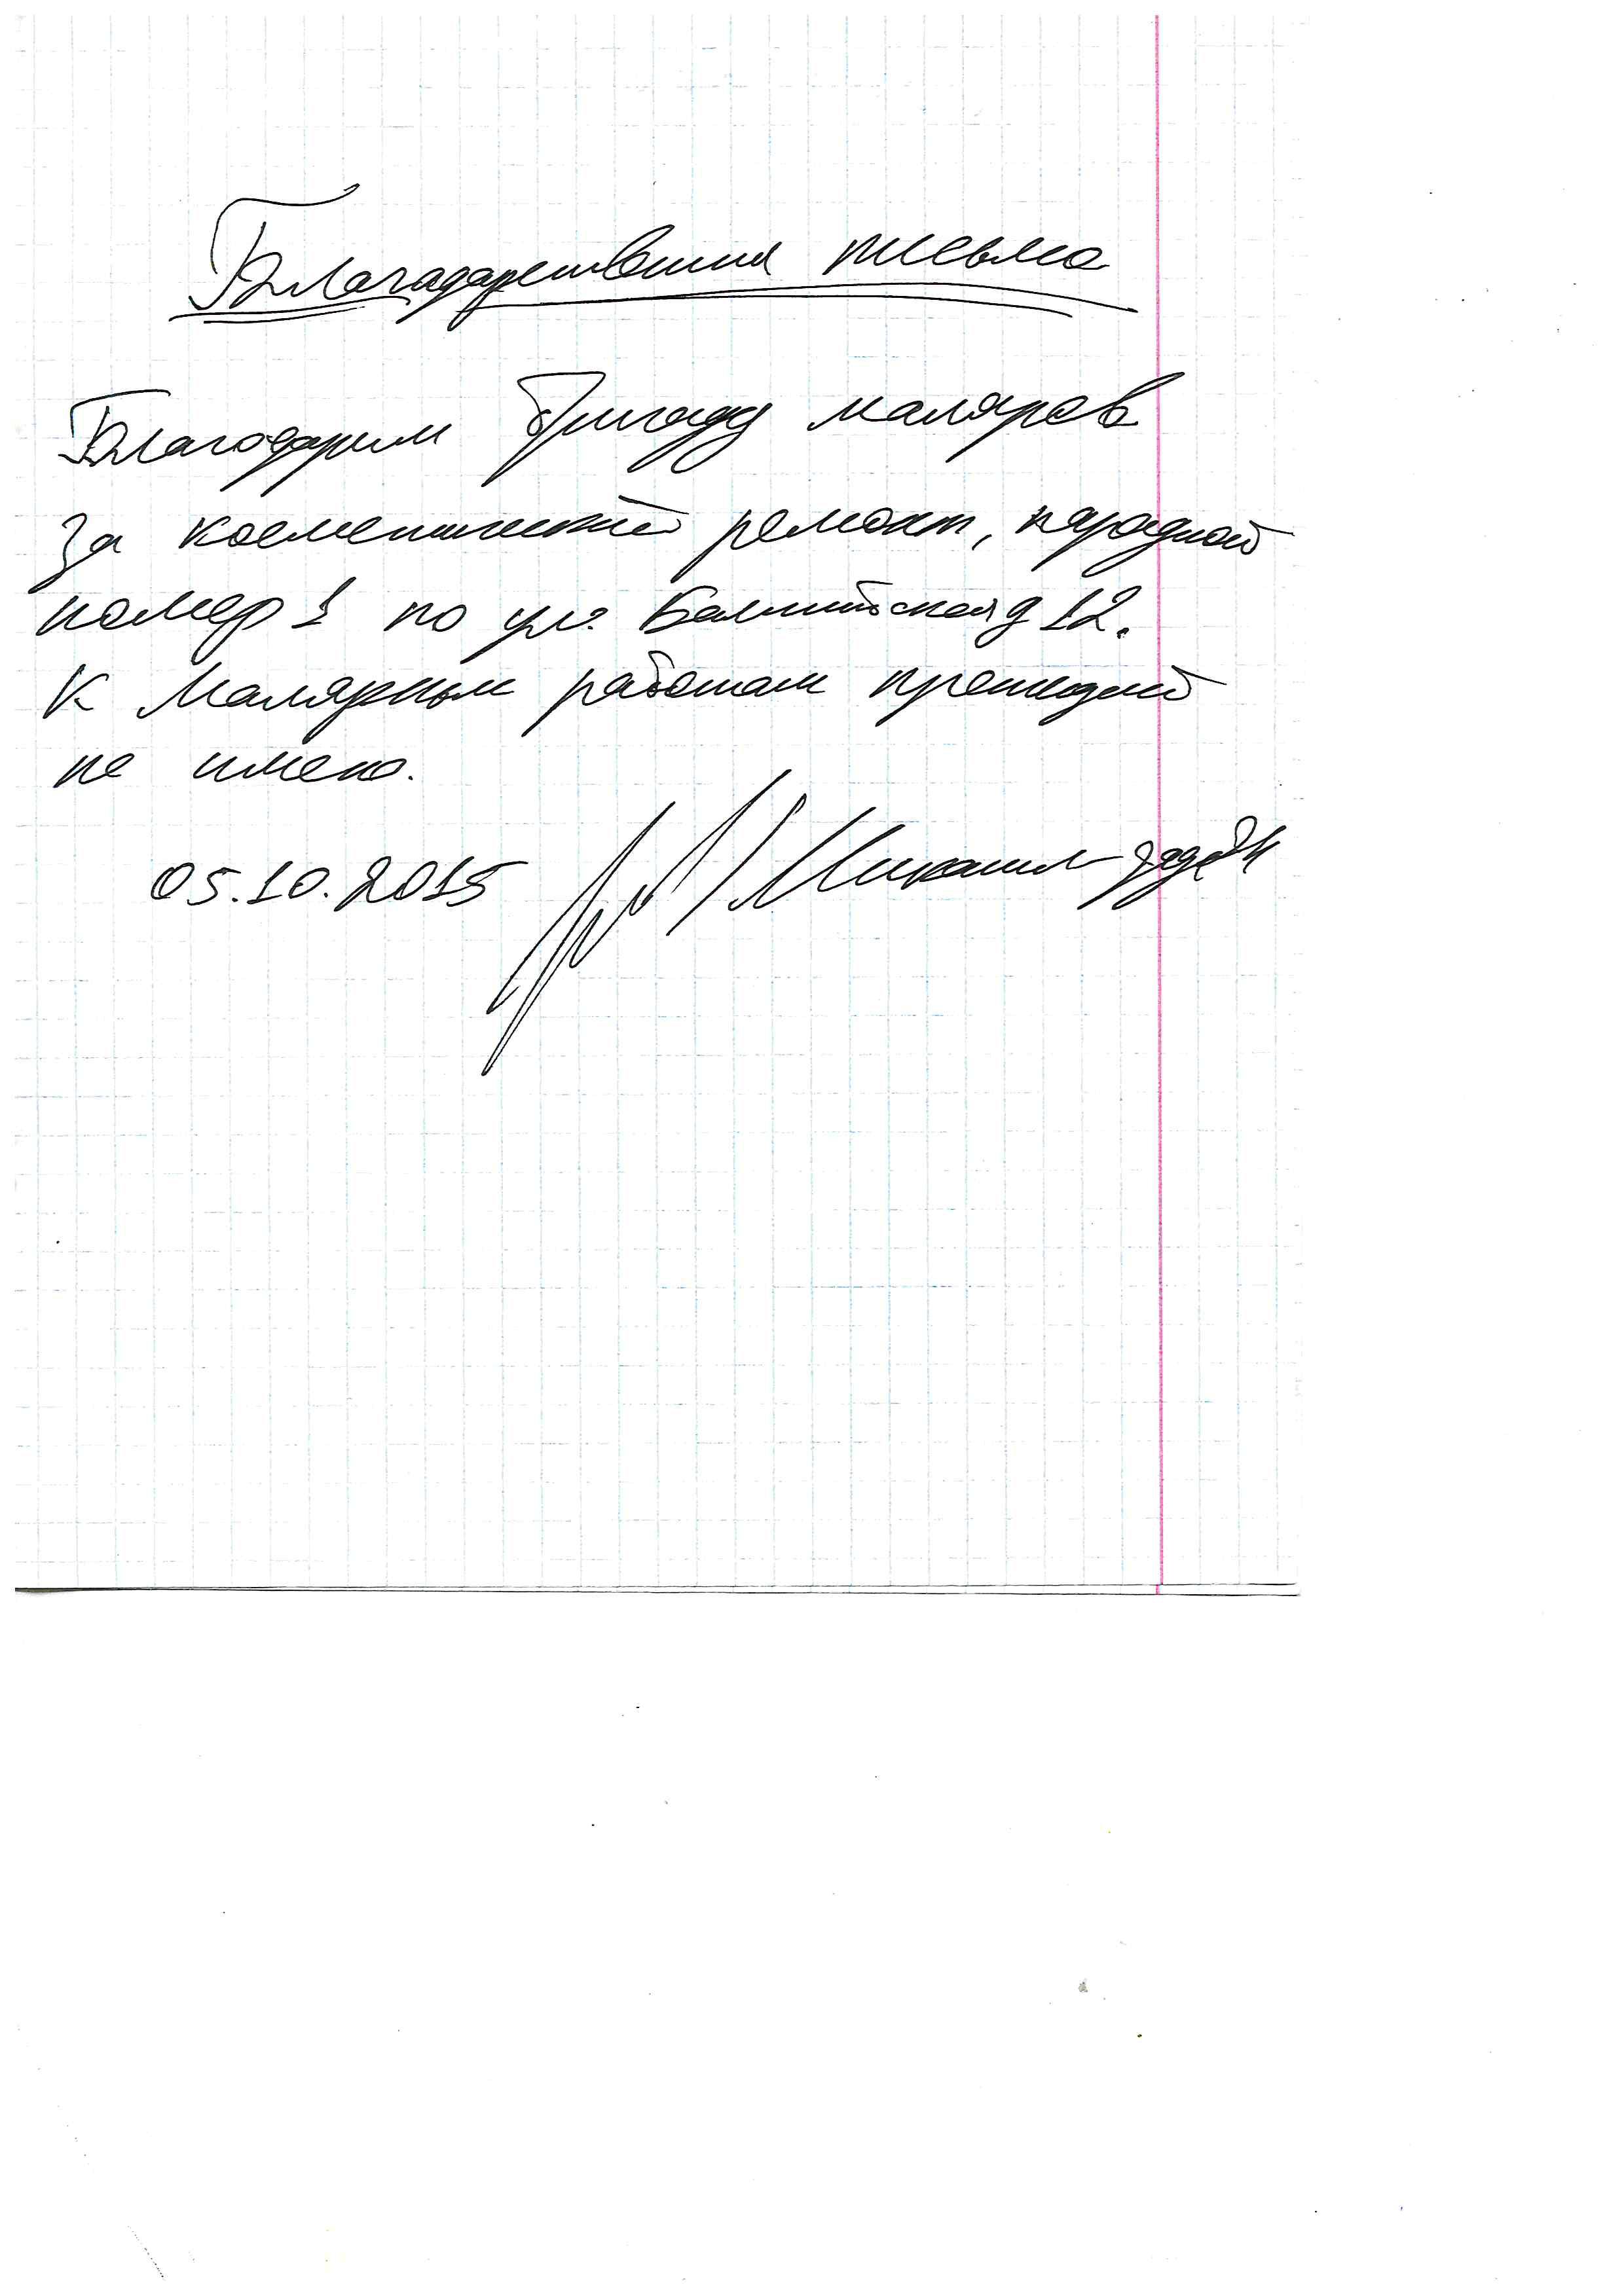 Благадарственная письмо
Благодарим бригаду маляров
за косметический ремонт, парадной
номер 1 по ул. Балтийская д 12.
К малярным работам претедзий
не имею.
05.10.2015 Микаил заде